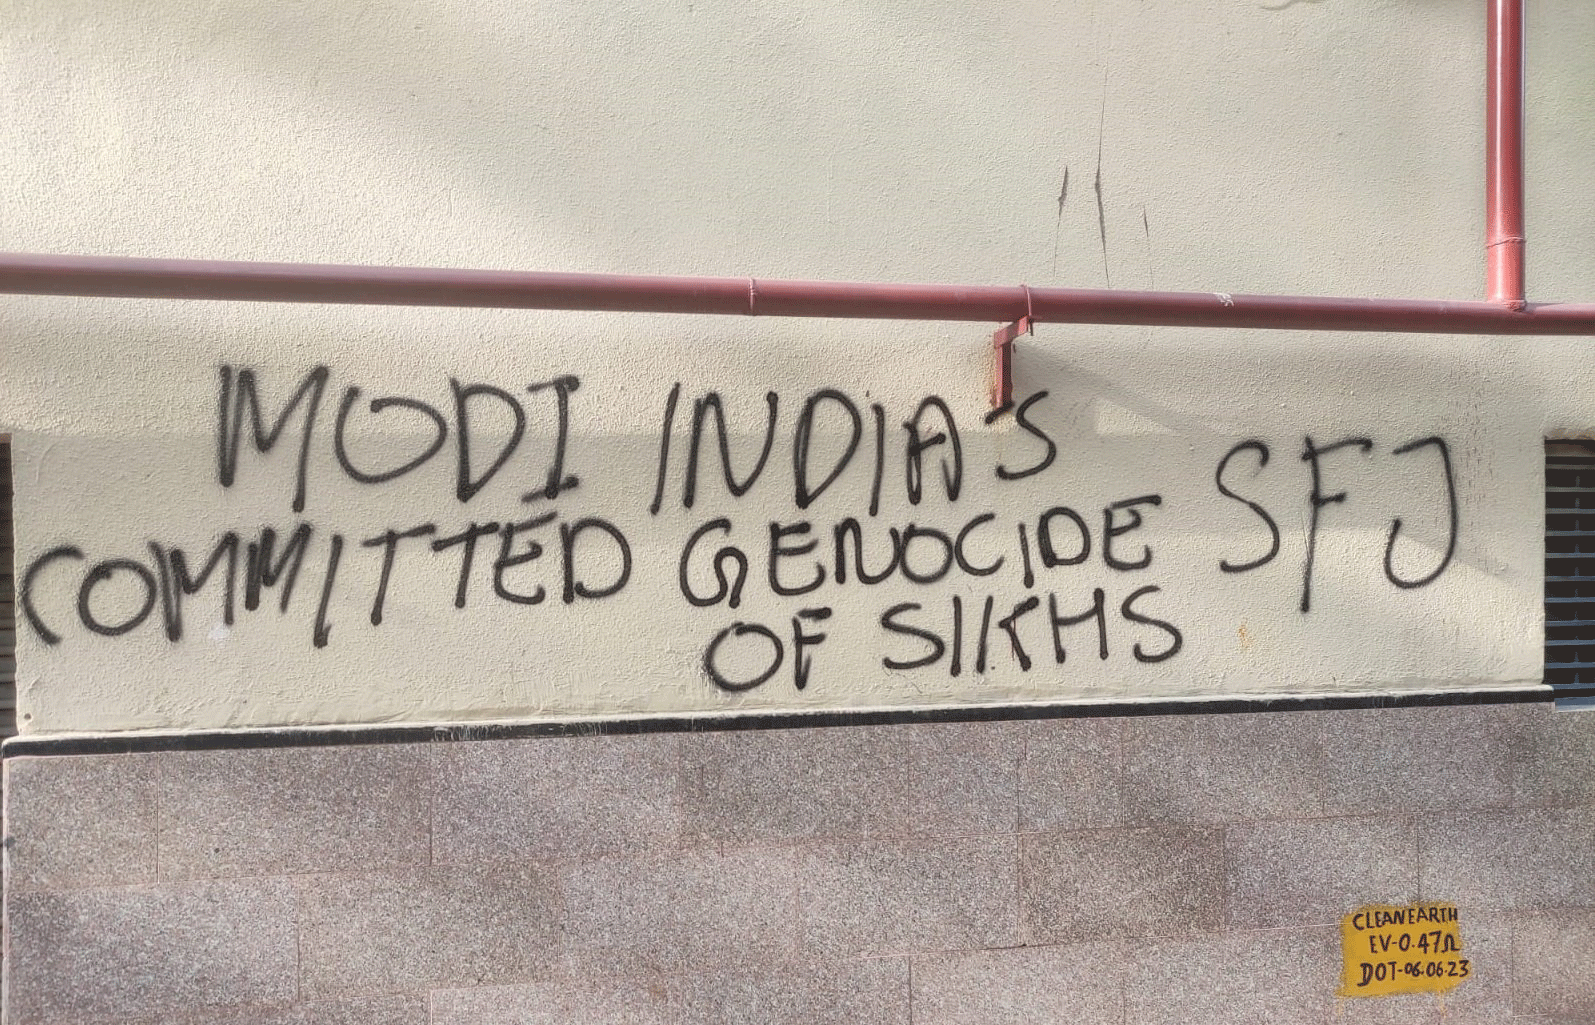 MODI INDIA'S
COMMITTED GENOCIDE SFJ
OF SIKHS
CLEAN EARTH
EV-0.47Ω
DOT-06.06.23